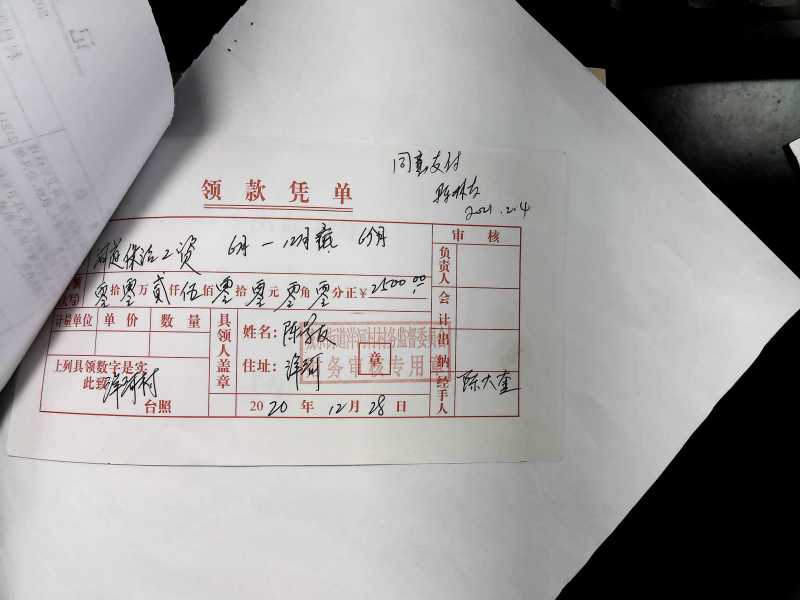 同意支付
2021.2.4
领款凭单
河道保洁工资 6月-12月 6个月
零拾零万贰仟伍佰零拾零元零角零分正￥2500.00
审核
负责人
会计
出纳
经手人 陈大奎
计量单位 单价 数量
具领人盖章
姓名：陈学友
住址：洋河
章
街道洋河村村务监督委员会
财务审核专用章
上列具领数字是实
此致
洋河村
台照
2020年12月28日